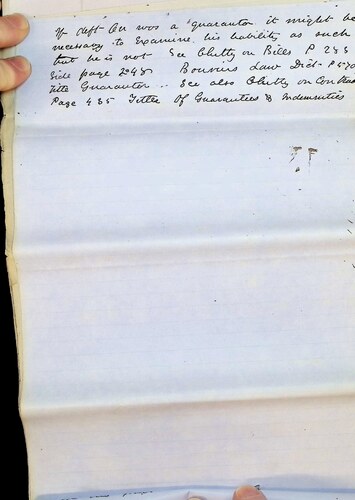 If deft Orr was a guarantor it might be
necessary to Examine his liability as such
but he is not See Chitty on Bills P 255
Side page 248 Bouviers Law Dict P 570
Title Guarantor .. See also Chitty on Con
Page 435 Title Of Guarantees & Indemnities